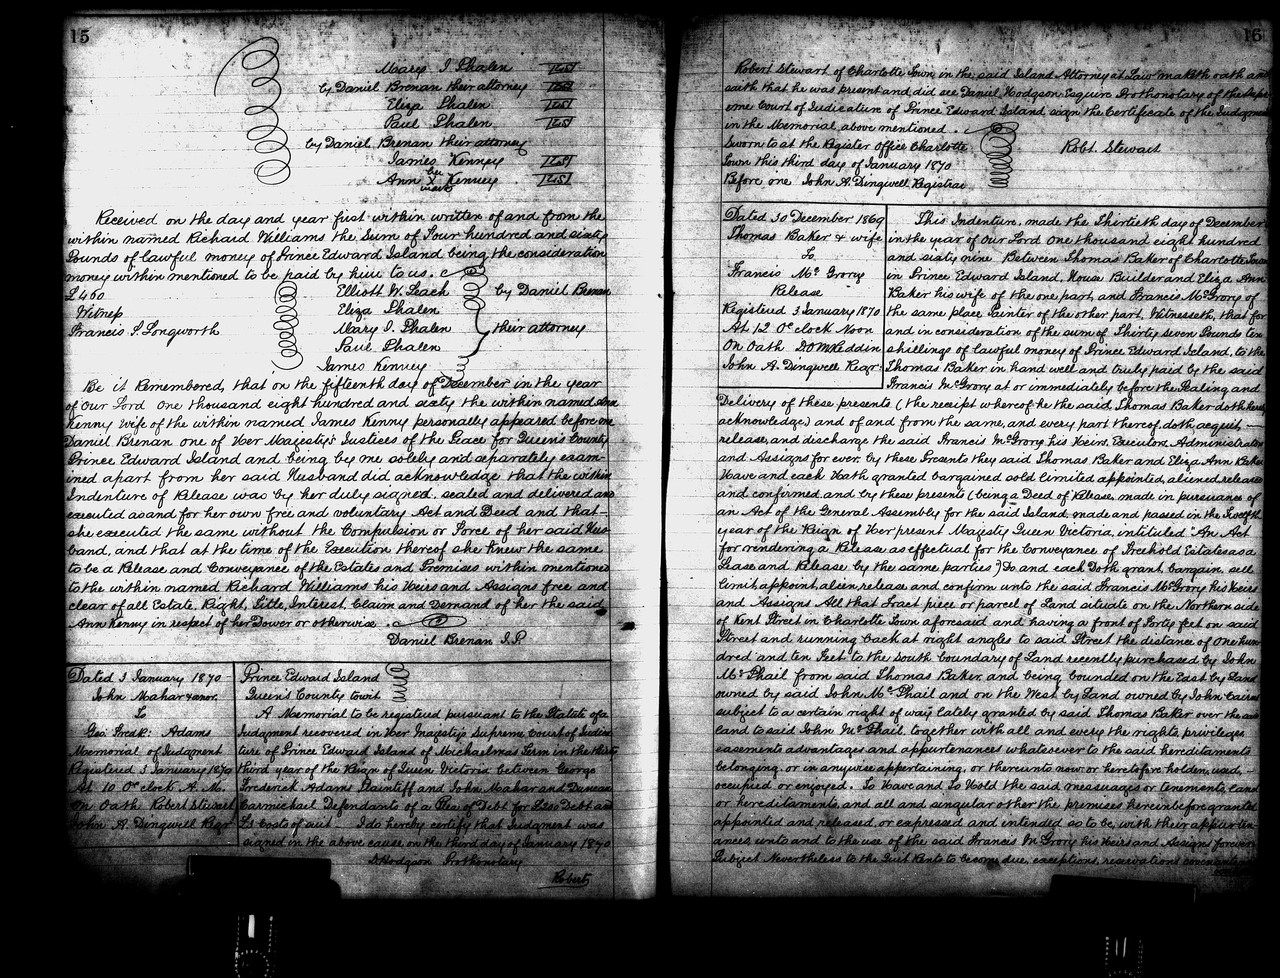 15
Mary I Phalen LS
by Daniel Brenan their attorney LS
Eliza Phalen LS
Paul Phalen LS
by Daniel Brenan their attorney
James Kenney LS
her
Ann X Kenney LS
mark
Received on the day and year first within written of and from the
within named Richard Williams the Sum of Four hundred and sixty
Pounds of lawful money of Prince Edward Island being the consideration
money within mentioned to be paid by him to us.
£460
Elliott W. Leach by Daniel Brenan
Witness
Eliza Phalen
Francis S. Longworth
Mary I. Phalen their attorney
Paul Phalen
James Kenney
Be it Remembered, that on the fifteenth day of December in the year
of Our Lord One thousand eight hundred and sixty the within named Ann
Kenny wife of the within named James Kenny personally appeared before me
Daniel Brenan one of Her Magesty's Justices of the Peace for Queen's County
Prince Edward Island and being by me solely and separately exam-
ined apart from her said Husband did acknowledge that the within
Indenture of Release was by her duly signed, sealed and delivered and
executed as and for her own free and voluntary Act and Deed and that
she executed the same without the Compulsion or Force of her said Hus
band, and that at the time of the Execution thereof she knew the same
to be a Release and Conveyance of the Estates and Premises within mentioned
to the within named Richard Williams his Heirs and Assigns free and
clear of all Estate, Right, Title, Interest, Claim and Demand of her the said
Ann Kenny in respect of her Dower or otherwise.
Daniel Brenan J.P.
Dated 3 January 1870
John Mahar & anor.
To
Geo: Fredk: Adams
Memorial of Judgment
Registered 3 January 1870
At 10 O'clock A. M.
On Oath Robert Stewart
John A. Dingwell Regr
Prince Edward Island
Queen's County towit
A Memorial to be registered pursuant to the Statute of a
Judgment recovered in Her Magesty's Supreme Court of Judica
ture of Prince Edward Island of Michaelmas Term in the thirty
third year of the Reign of Queen Victoria between George
Frederick Adams Plaintiff and John Mahar and Duncan
Carmichael Defendants of a Plea of Debt for £200 Debt and
costs of suit I do hereby certify that Judgment was
signed in the above cause on the third day of January 1870
DHodgson Prothonotary
Robert
16
Robert Stewart of Charlotte Town in the said Island Attorney at Law maketh oath and
saith that he was present and did see Daniel Hodgson Esquire Prothonotary of the Supr
eme Court of Judicature of Prince Edward Island sign the Certificate of the Judgment
in the Memorial above mentioned.
Sworn to at the Register Office Charlotte
Robt. Stewart
Town this third day of January 1870
Before one John A. Dingwell Registrar
Dated 30 December 1869
Thomas Baker & wife
To
Francis McGrory
Release
Registered 3 January 1870
At 12 O'clock Noon
On Oath
John A. Dingwell Regr
This Indenture, made the Thirtieth day of December
in the year of Our Lord One thousand eight hundred
and sixty nine Between Thomas Baker of Charlotte Town
in Prince Edward Island, House Builder and Eliza Ann
Baker his wife of the one part, and Francis McGrory of
the same place Painter of the other part, Witnesseth, that for
and in consideration of the sum of Thirty Seven Pounds ten
shillings of lawful money of Prince Edward Island, to the
Thomas Baker in hand well and truly paid by the said
Francis McGrory at or immediately before the Sealing and
Delivery of these presents (the receipt whereof he the said, Thomas Baker doth hereby
acknowledge) and of and from the same, and every part thereof, doth, acquit
release, and discharge the said Francis McGrory his Heirs, Executors, Administrators
and Assigns for ever, by these Presents they said Thomas Baker and Eliza Ann Baker
Have and each Hath granted bargained sold limited appointed, aliened released
and confirmed, and by these presents (being a Deed of Release, made in pursuance of
an Act of the General Assembly for the said Island, made and passed in the Twelfth
year of the Reign of Her present Magesty Queen Victoria, intituled "An Act
for rendering a Release as effectual for the Conveyance of Freehold Estates as a
Lease and Release by the same parties") Do, and each Doth grant, bargain, sell
limit, appoint, alien, release and confirm unto the said Francis McGrory his Heirs
and Assigns All that Tract piece or parcel of Land situate on the Northern side
of Kent Street in Charlotte Town aforesaid and having a front of Forty feet on said
Street and running back at right angles to said Street the distance of One hun
dred and ten Feet to the South boundary of Land recently purchased by John
McPhail from said Thomas Baker, and being bounded on the East by Land
owned by said John McPhail and on the West by Land owned by John Cairns
subject to a certain right of way lately granted by said Thomas Baker over the said
land to said John McPhail, together with all and every the rights, privileges
easements advantages and appurtenances whatsoever to the said hereditaments
belonging, or in anywise appertaining, or thereunto now or heretofore holden, used,
occupied or enjoyed. To Have and To Hold the said messuages or tenements, land
or hereditaments, and all and singular other the premises hereinbefore granted
appointed and released, or expressed and intended so to be, with their appurten
ances, unto and to the use of the said Francis McGrory his Heirs and Assigns forever
Subject Nevertheless to the Quit Rents to become due, exceptions, reservations covenants